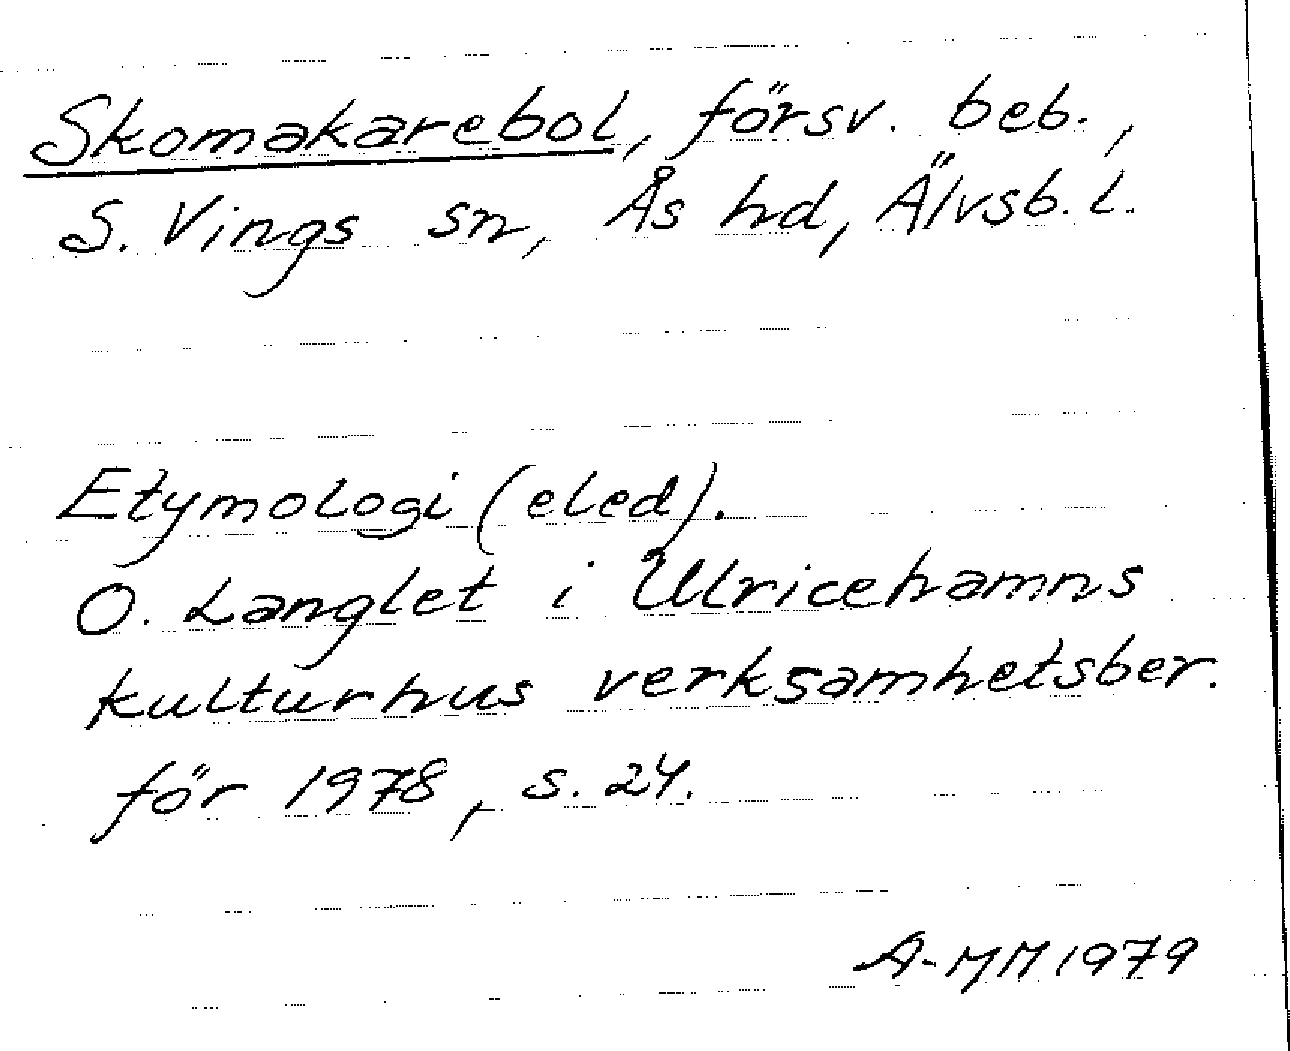 Skomakarebol, försv. beb.,
S. Vings sn, Ås hd, Älvsb. l.
Etymologi (eled).
O. Langlet i Ulricehamns
kulturhus verksamhetsber.
för 1978, s. 24.
A-MM 1979